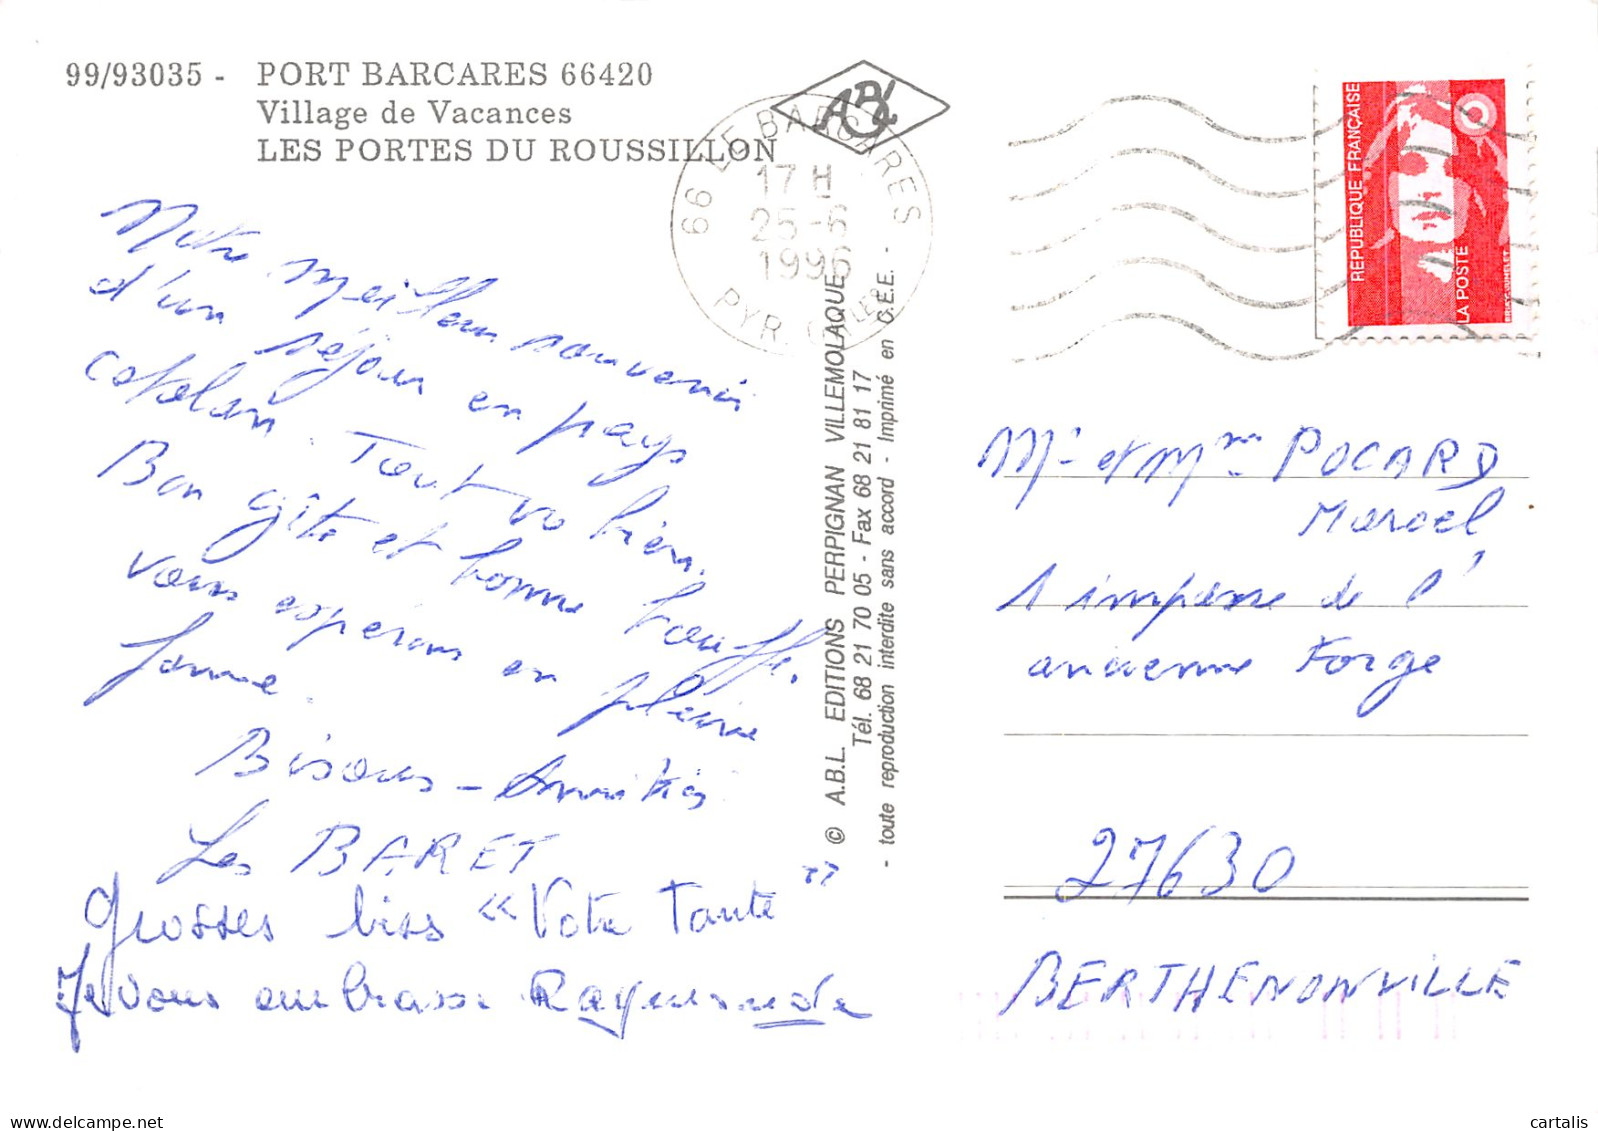 99/93035 - PORT BARCARES 66420
Village de Vacances
LES PORTES DU ROUSSILLON
ABL
66 LE BARCARES
17 H
25 -6
1996
PYR. ORLES
REPUBLIQUE FRANÇAISE
LA POSTE
Notre meilleur souvenir
d'un séjour en pays
catalan. Tout va bien.
Bon gîte et bonne bouffe.
Vous espérons en pleine
forme.
Bisous - Amitiés
Les BARET
Grosses biss « Votre Tante "
Je vous embrasse Raymonde
© A.B.L. EDITIONS PERPIGNAN VILLEMOLAQUE
Tél. 68 21 70 05 - Fax 68 21 81 17
- toute reproduction interdite sans accord - Imprimé en C.E.E. -
Mr et Mme POCARD
Marcel
1 impasse de l'
ancienne Forge
27630
BERTHENONVILLE
www.delcampe.net
cartalis